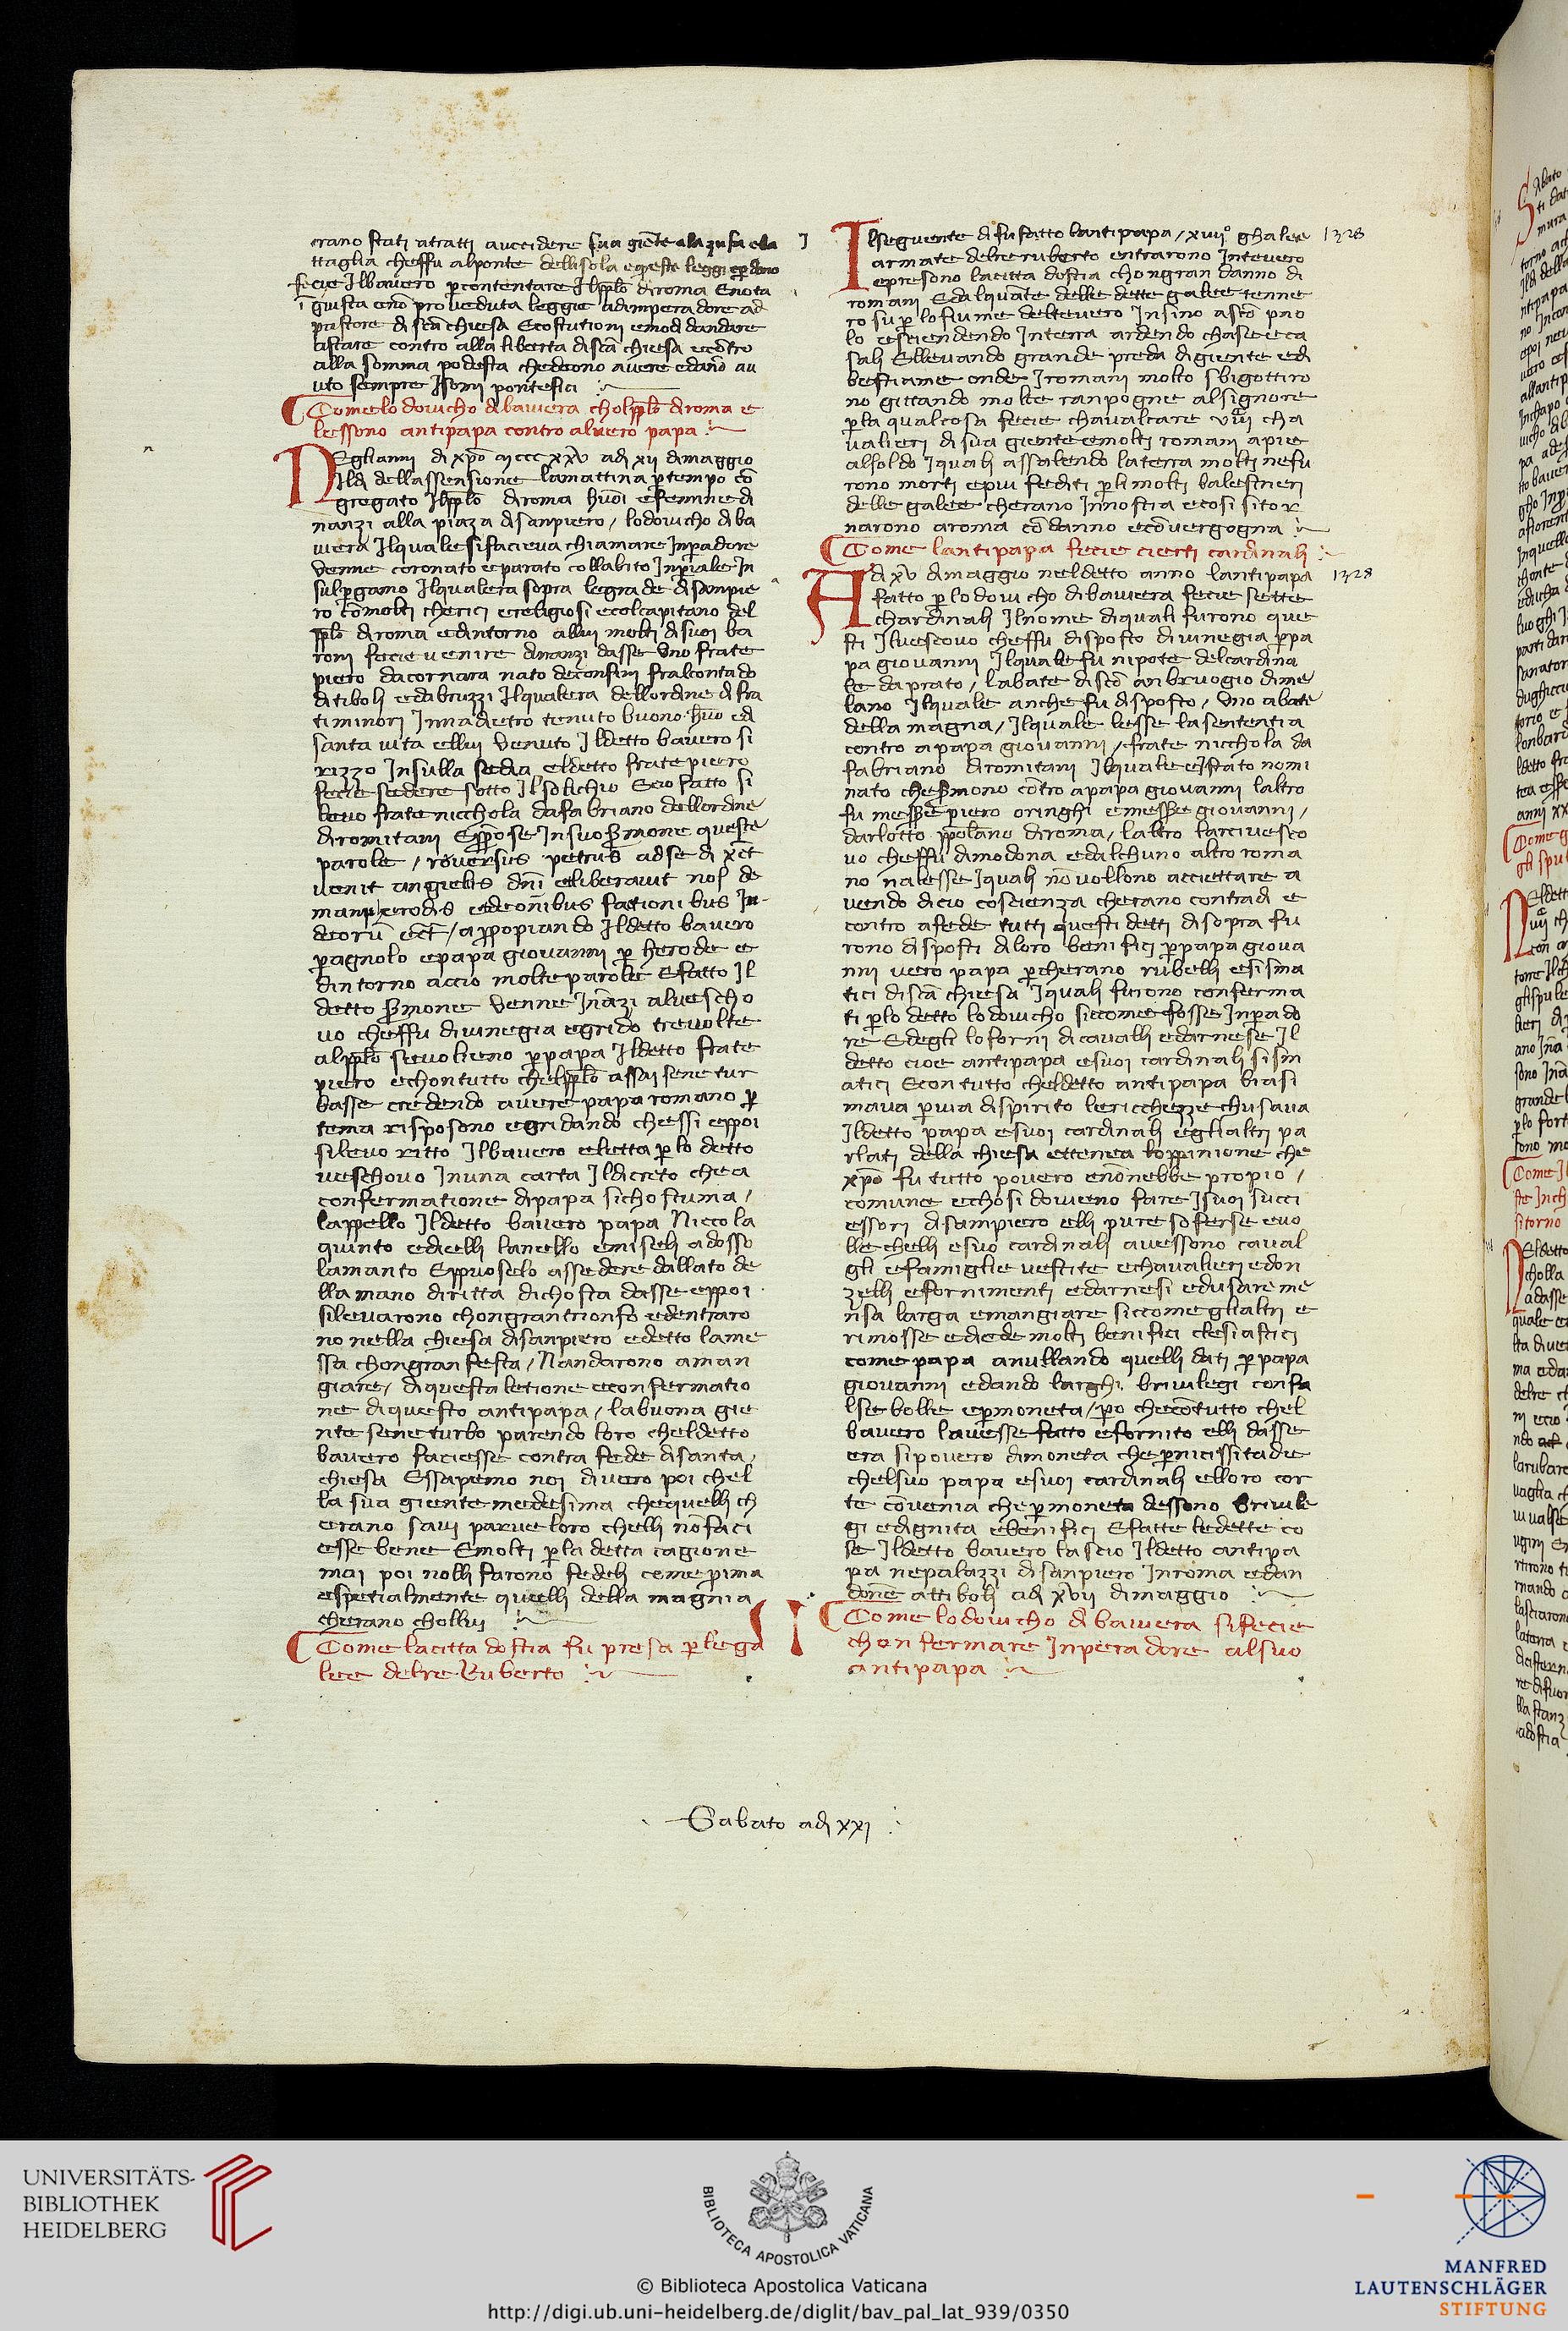 erano stati atratti auccidere sua giẽte ala zufa ela
ttaglia cheffu alponte dellisola e queste leggi e perdono
fecie Ilbavero p contentare Ilpplo di roma E nota
i giusta e nõ proveduta leggie adimperadore ad
pastore di scã chiesa E costutioni e modi dandare
astare contro alla liberta di scã chiesa e cõtro
alla somma podesta chedeono avere e danõ au
uto sempre I somi pontefici
Come lo dovicho di baviera chol pplo di roma e
lessono antipapa contro al vero papa
Negli anni di xpõ mccc xxv adi xii di maggio
Il di dellassensione la mattina p tempo cõ
gregato Il pplo di roma huoi e femine di
nanzi alla piaza di san piero / lodovicho di ba
viera Ilquale si facieva chiamare Inpadore
venne coronato e parato collabito Inperiale In
sul pgamo Ilqualera sopra le grade di san pie
ro cõ molti cherici e religiosi e col capitano del
pplo di roma e dintorno allui molti di suoi ba
roni fecie venire dinanzi dasse Uno frate
piero da cornara nato de confini fral contado
di tiboli e dabruzzi Ilqualera dellordine di fra
ti minori Innadietro tenuto buono huõ e di
santa vita e llui venuto Il detto bavero si
rizzo In sulla sedia e l detto frate piero
fecie sedere sotto Il solichio E cio fatto si
levo frate nicchola da fabriano dellordine
di romitani E ppose In suo smone queste
parole / reversus petrus ad se di xet
venit angielus dñi e liberavit nos de
manu erodis e de omibus factionibus Iu
deorũ ect / appopiando Il detto bavero
p agnolo e papa giovanni p herode e
din torno accio molte parole E fatto Il
detto smone venne Inãzi al vescho
vo cheffu di vinegia e grido tre volte
al pplo se volieno p papa Il detto frate
piero e chon tutto chel pplo assai sene tur
basse credendo avere papa romano p
tema risposono e gridando chessi e ppoi
si levo ritto Il bavero e letta p lo detto
veschovo In una carta Il dicreto che a
confermatione di papa si chostuma /
lappello Il detto bavero papa Niccola
quinto e dielli lanello e miseli adosso
lamanto E ppuoselo assedere dallato de
lla mano diritta dichosta dasse e ppoi
si levarono chon gran trionfo e dentraro
no nella chiesa di san piero e detto la me
ssa chon gran festa / Nandarono aman
giare / di questa letione e confermatio
ne di questo antipapa / la buona gie
nte sene turbo parendo loro cheldetto
bavero faciesse contra fede di santa
chiesa E ssapemo noi di vero poi chel
la sua giente medesima chequelli ch
erano savi parve loro chelli nõ faci
esse bene E molti p la detta cagione
mai poi nolli furono fedeli come prima
e spetialmente quelli della magnia
cherano chollui
Come la citta dostia fu presa p le ga
lee delre Ruberto
Il seguente di fu fatto lantipapa / xviiiº ghalee
armate delre ruberto entrarono Intevero
e presono la citta dostia chon gran danno di
romani E dalquãte delle dette galee tenne
ro su p lo fiume deltevero Insino a sco pao
lo e sciendendo In terra ardendo chase e ca
sali E llevando grande preda di giente e di
bestiame onde I romani molto sbigottiro
no gittando molte ranpogne al signore
p la qualcosa fecie chavalcare viiiᶜ cha
valieri di sua giente e molti romani apie
al soldo I quali assalendo la terra molti ne fu
rono morti e piu fediti p li molti balestrieri
delle galee cherano In nostia e cosi si tor
narono aroma cõ danno e cõ vergogna
Come lantipapa fecie cierti cardinali
Adi xv di maggio neldetto anno lantipapa
fatto p lo dovicho di baviera fecie sette
chardinali Il nome di quali furono que
sti Il vescovo cheffu disposto di vinegia p pa
pa giovanni Ilquale fu nipote del cardina
le da prato / labate di sco anbruogio di me
lano Ilquale anche fu disposto / Uno abate
della magna / Ilquale lesse la sententia
contro a papa giovanni / frate nicchola da
fabriano di romitani Ilquale e Istato nomi
nato che smono cõtro a papa giovanni laltro
fu messe piero oringhi e messe giovanni /
darlotto ppolano di roma / laltro larcivesco
vo cheffu di modona e dalchuno altro roma
no nalesse I quali nõ vollono acciettare a
vendo dicio coscienza cherano contra di e
contro a fede tutti questi detti di sopra fu
rono disposti di loro benifici p papa giova
nni vero papa p cherano rubelli e sisma
tici di scã chiesa I quali furono conferma
ti p lo detto lodovicho siccome fosse Inpado
re E degli lo forni di cavalli e darnese Il
detto cioe antipapa e suoi cardinali sism
atici E con tutto cheldetto antipapa biasi
mava p via dispirito le ricchezze chusava
Il detto papa e suoi cardinali e gli altri pa
rlati della chiesa e tteneta loppinione che
xpõ fu tutto povero e nõnebbe propio /
comune e chosi dovieno fare I suoi succi
essori di sampiero elli pure soferse e vo
lle chelli e suo cardinali avessono caval
gli e famiglie vestite e chavalieri e don
zelli e fornimenti e darnesi e dusare me
nsa larga e mangiare siccome gli altri e
rimosse e diede molti benifici clesiastici
come papa anullando quelli dati p papa
giovanni e dando larghi brivilegi con fa
lse bolle e p moneta / p o che cõ tutto chel
bavero lavesse fatto e fornito elli dasse
era si povero di moneta che p nicissita die
chel suo papa e suoi cardinali e lloro cor
te cõvenia che p moneta dessono Brivile
gi e dignita e benifici E fatte ledette co
se Il detto bavero lascio Il detto antipa
pa ne palazzi di san piero In roma e dan
donẽ attiboli adi xvii di maggio
Come lodovicho di baviera si fecie
chonfermare Inperadore al suo
antipapa
1328
1328
Sabato adi xxi
UNIVERSITÄTS-
BIBLIOTHEK
HEIDELBERG
BIBLIOTECA APOSTOLICA VATICANA
© Biblioteca Apostolica Vaticana
http://digi.ub.uni-heidelberg.de/diglit/bav_pal_lat_939/0350
MANFRED
LAUTENSCHLÄGER
STIFTUNG